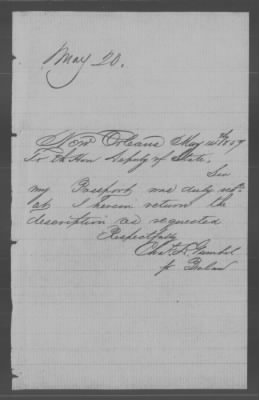 May 20.
New Orleans May 15th 1857
To th Hon Deputy of State,
Sir
my Passport was duly
I herein return the
description as requested
Respectfully
Chas. A.